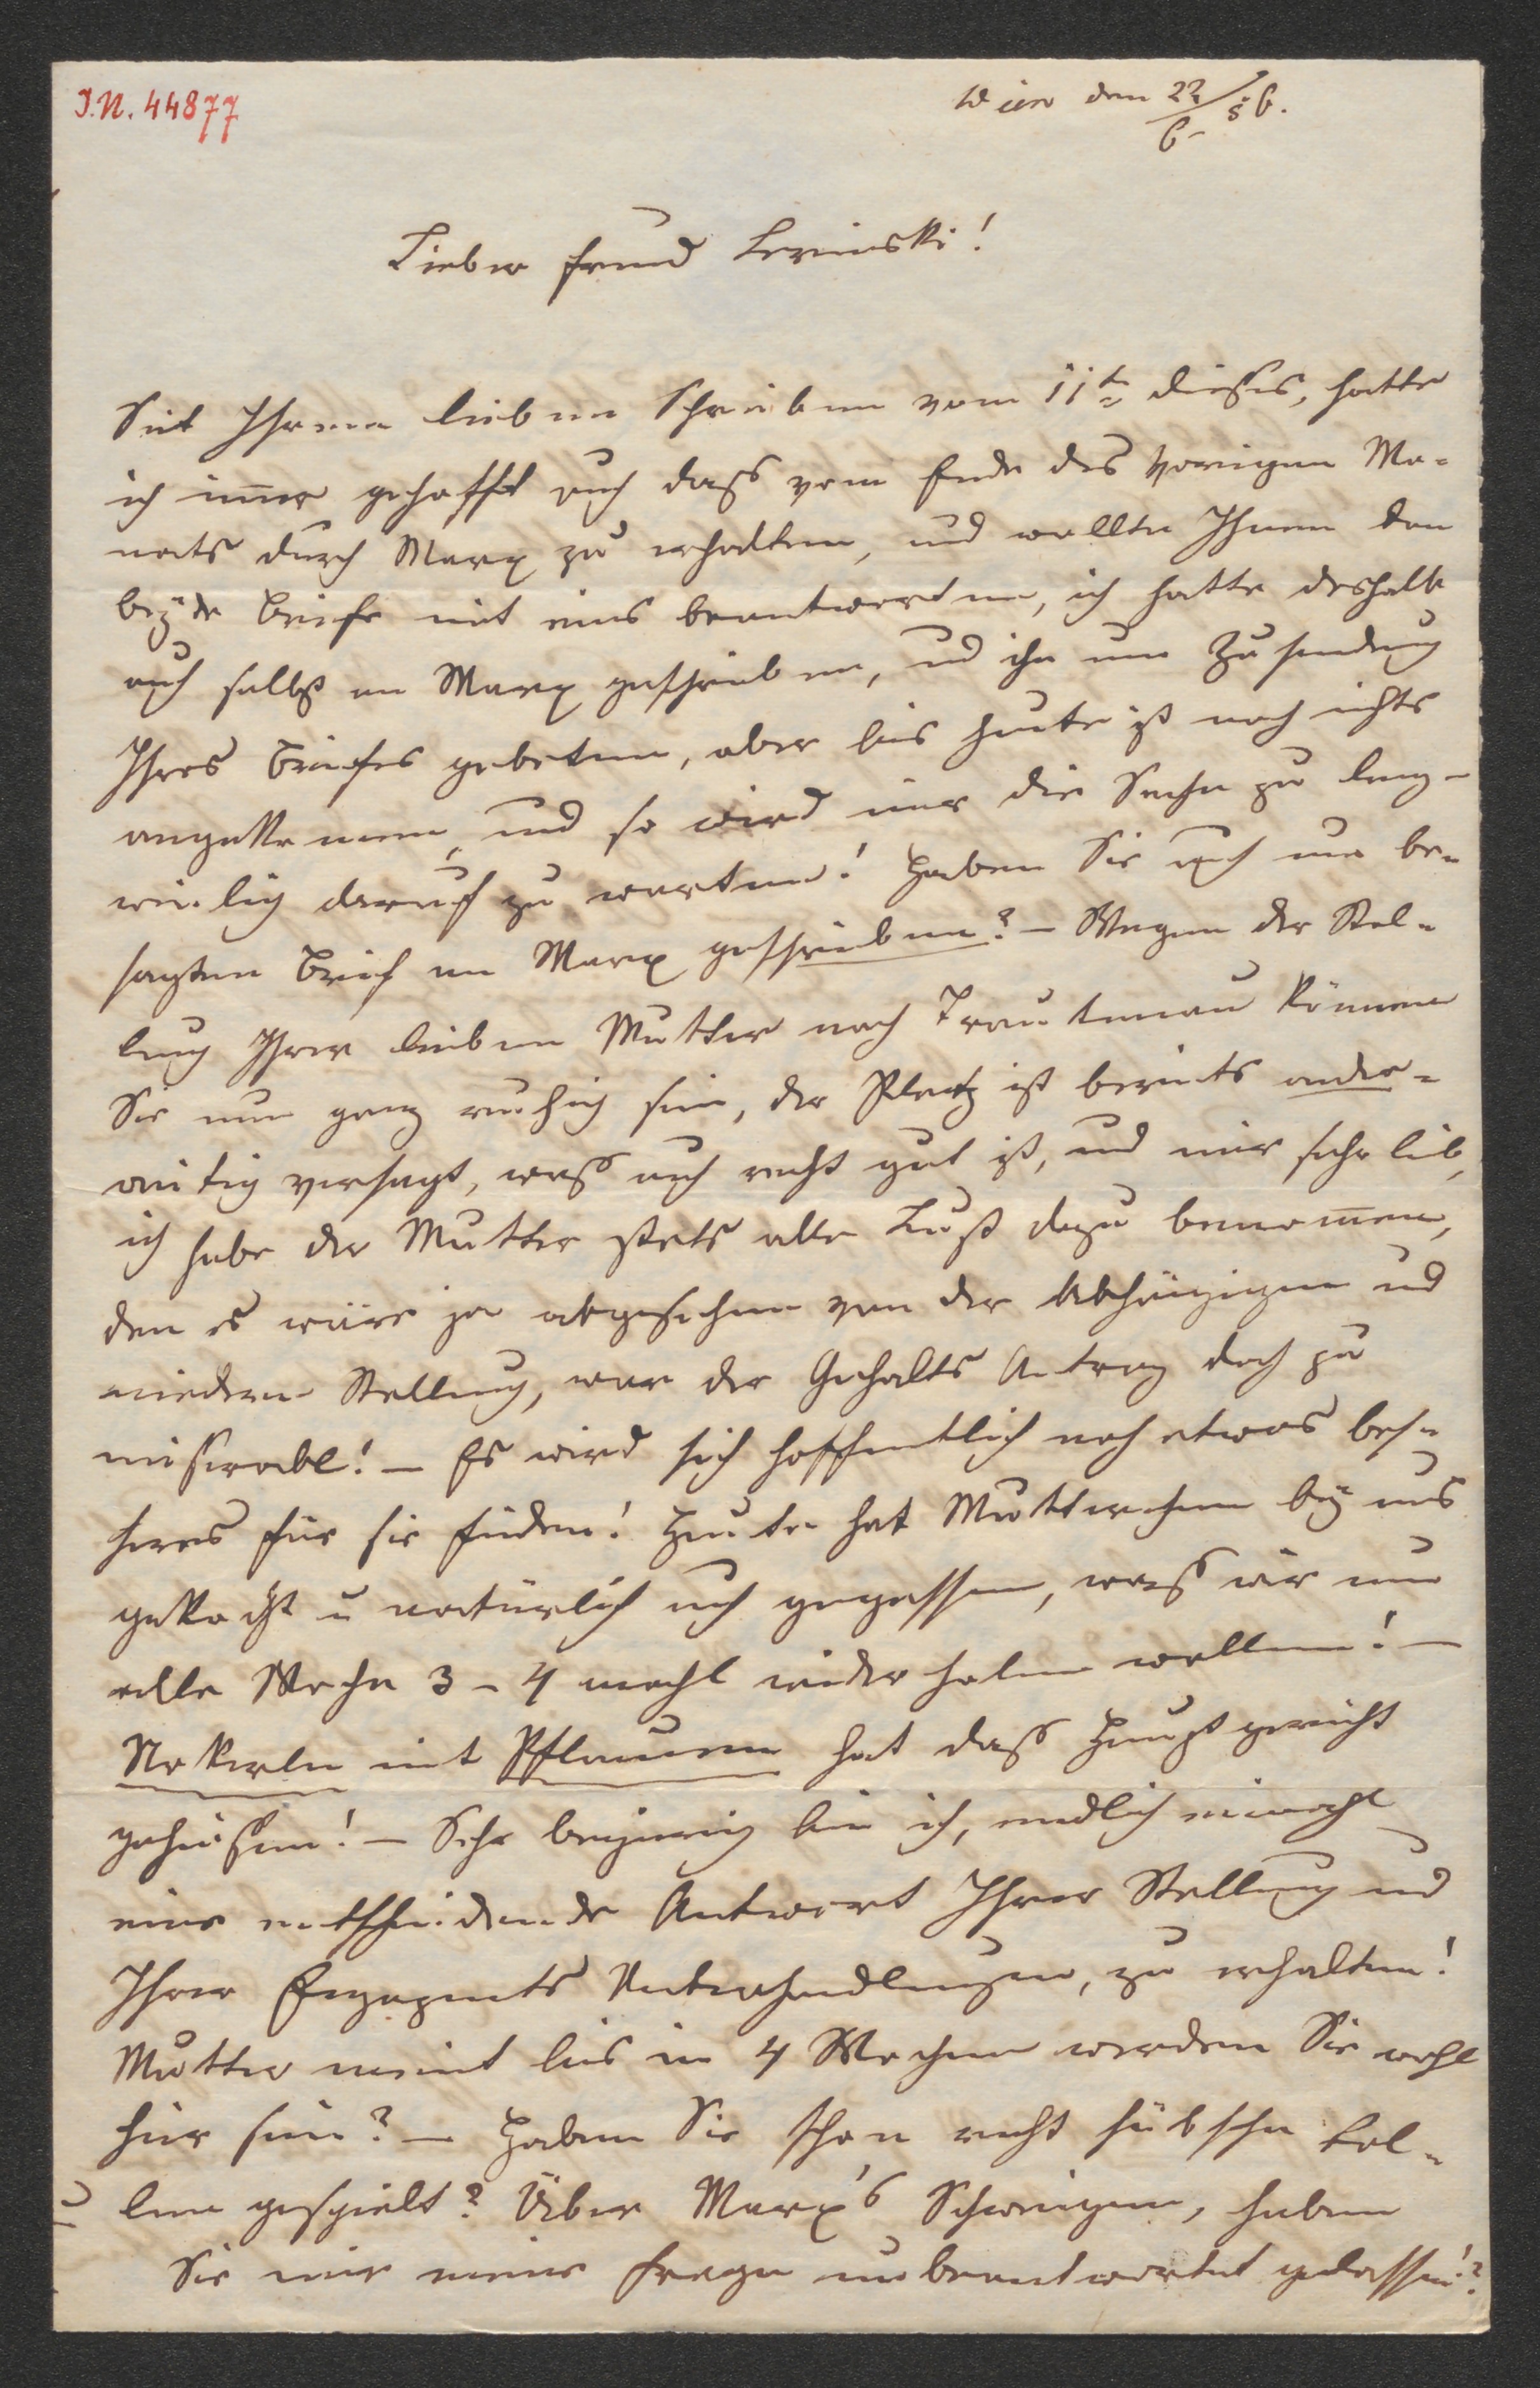 I.N. 44877
Wien den 22/6 56.
Lieber Freund Lewinski!
Seit Ihrem lieben Schreiben vom 11t dieses, hatte
ich im̄er gehofft auch dass vom Ende des vorigen Mo-
nats durch Marx zu erhalten, und wollte Ihnen dan
beÿde Briefe mit eins beantworten, ich hatte deshalb
auch selbst an Marx geschrieben, und ihn um Zusendung
Ihres Briefes gebeten, aber bis heute ist noch nichts
angekommen, und so wird mir die Sache zu lang-
weilig darauf zu warten! Haben Sie auch nur be-
sagten Brief an Marx geschrieben? – Wegen der Stel-
lung Ihrer lieben Mutter nach Trautenau können
Sie nun ganz ruhig sein, der Platz ist bereits ander-
weitig versagt, wass auch recht gut ist, und mir sehr lieb,
ich habe der Mutter stets alle Lust dazu benom̄en,
den es wäre ja abgesehen von der Abhängigen und
niedern Stellung, war der Gehalts Antrag doch zu
misserabl! – Es wird sich hoffentlich noch etwas bes-
seres für sie finden! Heute hat Mutterchen beÿ uns
gekocht u natürlich auch gegessen, wass wir nun
alle Woche 3 – 4 mahl wieder holen wollen! –
Nokerln mit Pflaumen hat dass Hauptgericht
geheissen! – Sehr begierig bin ich, endlich einmahl
eine entscheidende Antwort Ihrer Stellung und
Ihrer Engagments Unterhandlungen, zu erhalten!
Mutter meint bis in 4 Wochen werden Sie wohl
hier sein? – Haben Sie schon recht hübsche Rol-
len gespielt? Über Marx's Schweigen, haben
Sie mir meine Frage unbeantwortet gelassen!?